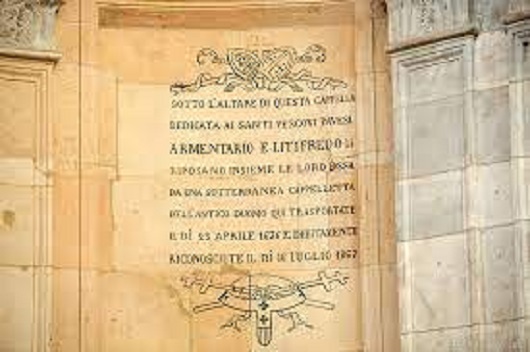 SOTTO L'ALTARE DI QUESTA CAPPELLA
DEDICATA AI SANTI VESCOVI PAVESI
ARMENTARIO E LITIFREDO
RIPOSANO INSIEME LE LORO OSSA
DA UNA SOTTERRANEA CAPPELLETTA
DELL'ANTICO DUOMO QUI TRASPORTATE
IL DÌ 23 APRILE E DEBITAMENTE
RICONOSCIUTE IL DÌ LUGLIO